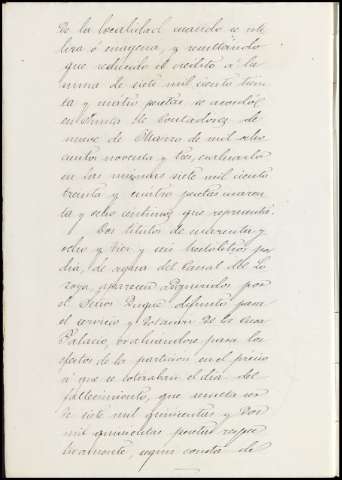 de la localidad cuando se ute
lira ó enagena, y resultando
que reducido el credito á la
suma de siete mil ciento trein
ta y cuatro pesetas se acordó
en Junta de Contadores de
nueve de Marzo de mil ocho
cientos noventa y tres, evaluarlo
en las mismas siete mil ciento
treinta y cuatro pesetas cuaren
ta y ocho centimos que representa.
Dos titulos de cuarenta y
ocho y diez y seis hectolitros por
dia, de agua del Canal del Lo
zoya, aparecen adquiridos por
el Señor Duque difunto para
el servicio y dotacion de la casa
Palacio, evaluandose para los
efectos de la particion en el precio
á que se cotizaban el dia del
fallecimiento, que resulta ser
de siete mil quinientas y dos
mil quinientas pesetas respec
tivamente, segun consta de